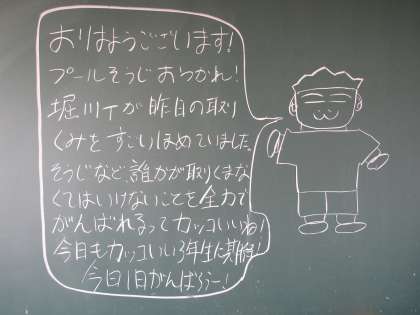 おはようございます!
プールそうじおつかれ!
堀川Tが昨日の取り
くみをすごいほめていました。
そうじなど誰かが取りくまな
くてはいけないことを全力で
がんばれるってカッコいいね!
今日もカッコいい3年生に期待!
今日1日がんばろうー!